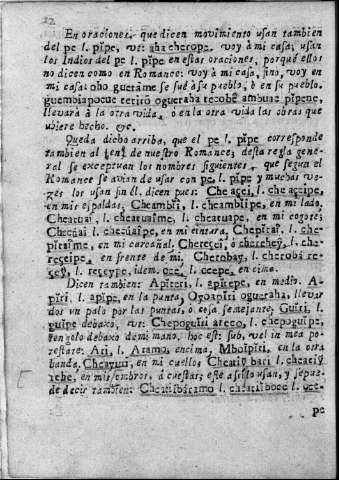 22
En oraciones, que dicen movimiento usan tambien
del pe l. pĭpe, vt: aha cherope, voy à mi casa, usan
los Indios del pe l. pĭpe en estas oraciones, porque ellos
no dicen como en Romance: voy à mi casa, sino, voy en
mi casa: oho guetãme se fuè à su pueblo, è en su pueblo.
llevarà à la otra vida, ò en la otra vida las obras que
ubiere hecho. &c.
Queda dicho arriba, que el pe l. pĭpe corresponde
tambien al de nuestro Romance; desta regla gene-
ral se exceptuan los nombres siguientes, que segun el
Romance se avian de usar con pe l. pĭpe y muchas ve-
zes los usan sin èl. dicen pues: Che açei, l. che açeipe,
en mis espaldas, Cheambĭi, l. cheambĭipe, en mi lado,
Cheatuai, l. cheatuaĭme, l. cheatuape, en mi cogote;
l. che-
pĭtaĭme, en mi carcañal, Chereçei, ò cherechey, l. che-
reçeipe, en frente de mi. Cherobay, l. cherobá re-
l. reçeype, idem. oce l. ocepe, en cima.
Dicen tambien: Apĭteri, l. apĭtepe, en medio. A-
pĭri, l. apĭpe, en la punta, Oyoapĭri ogueraha, llevar
dos un palo por las puntas, ò cosa semejante; Guĭri, l.
guĭpe debaxo, vt: Chepoguĭri areco, l. chepoguĭpe,
tengolo debaxo de mi mano. hoc est: sub, vel in mea po-
testate: Ari, l. Aramo, encima, Mboĭpĭri, en la otra
banda, Cheayuri, en mi cuello;
en mis ombros, à cuestas; este assi lo usan, y se pue-
de decir tambien:
pe